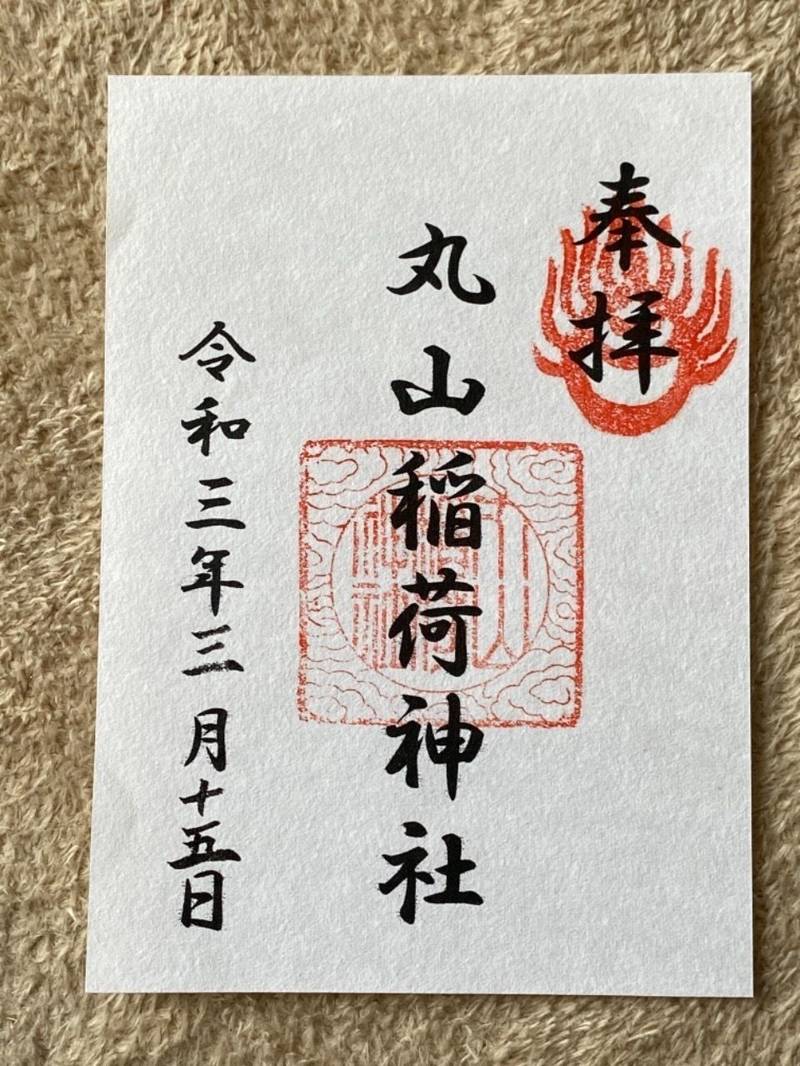 奉拝
丸山稲荷神社
令和三年三月十五日